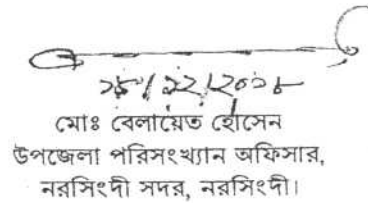 মোঃ বেলায়েত হোসেন
উপজেলা পরিসংখ্যান অফিসার,
নরসিংদী সদর, নরসিংদী।